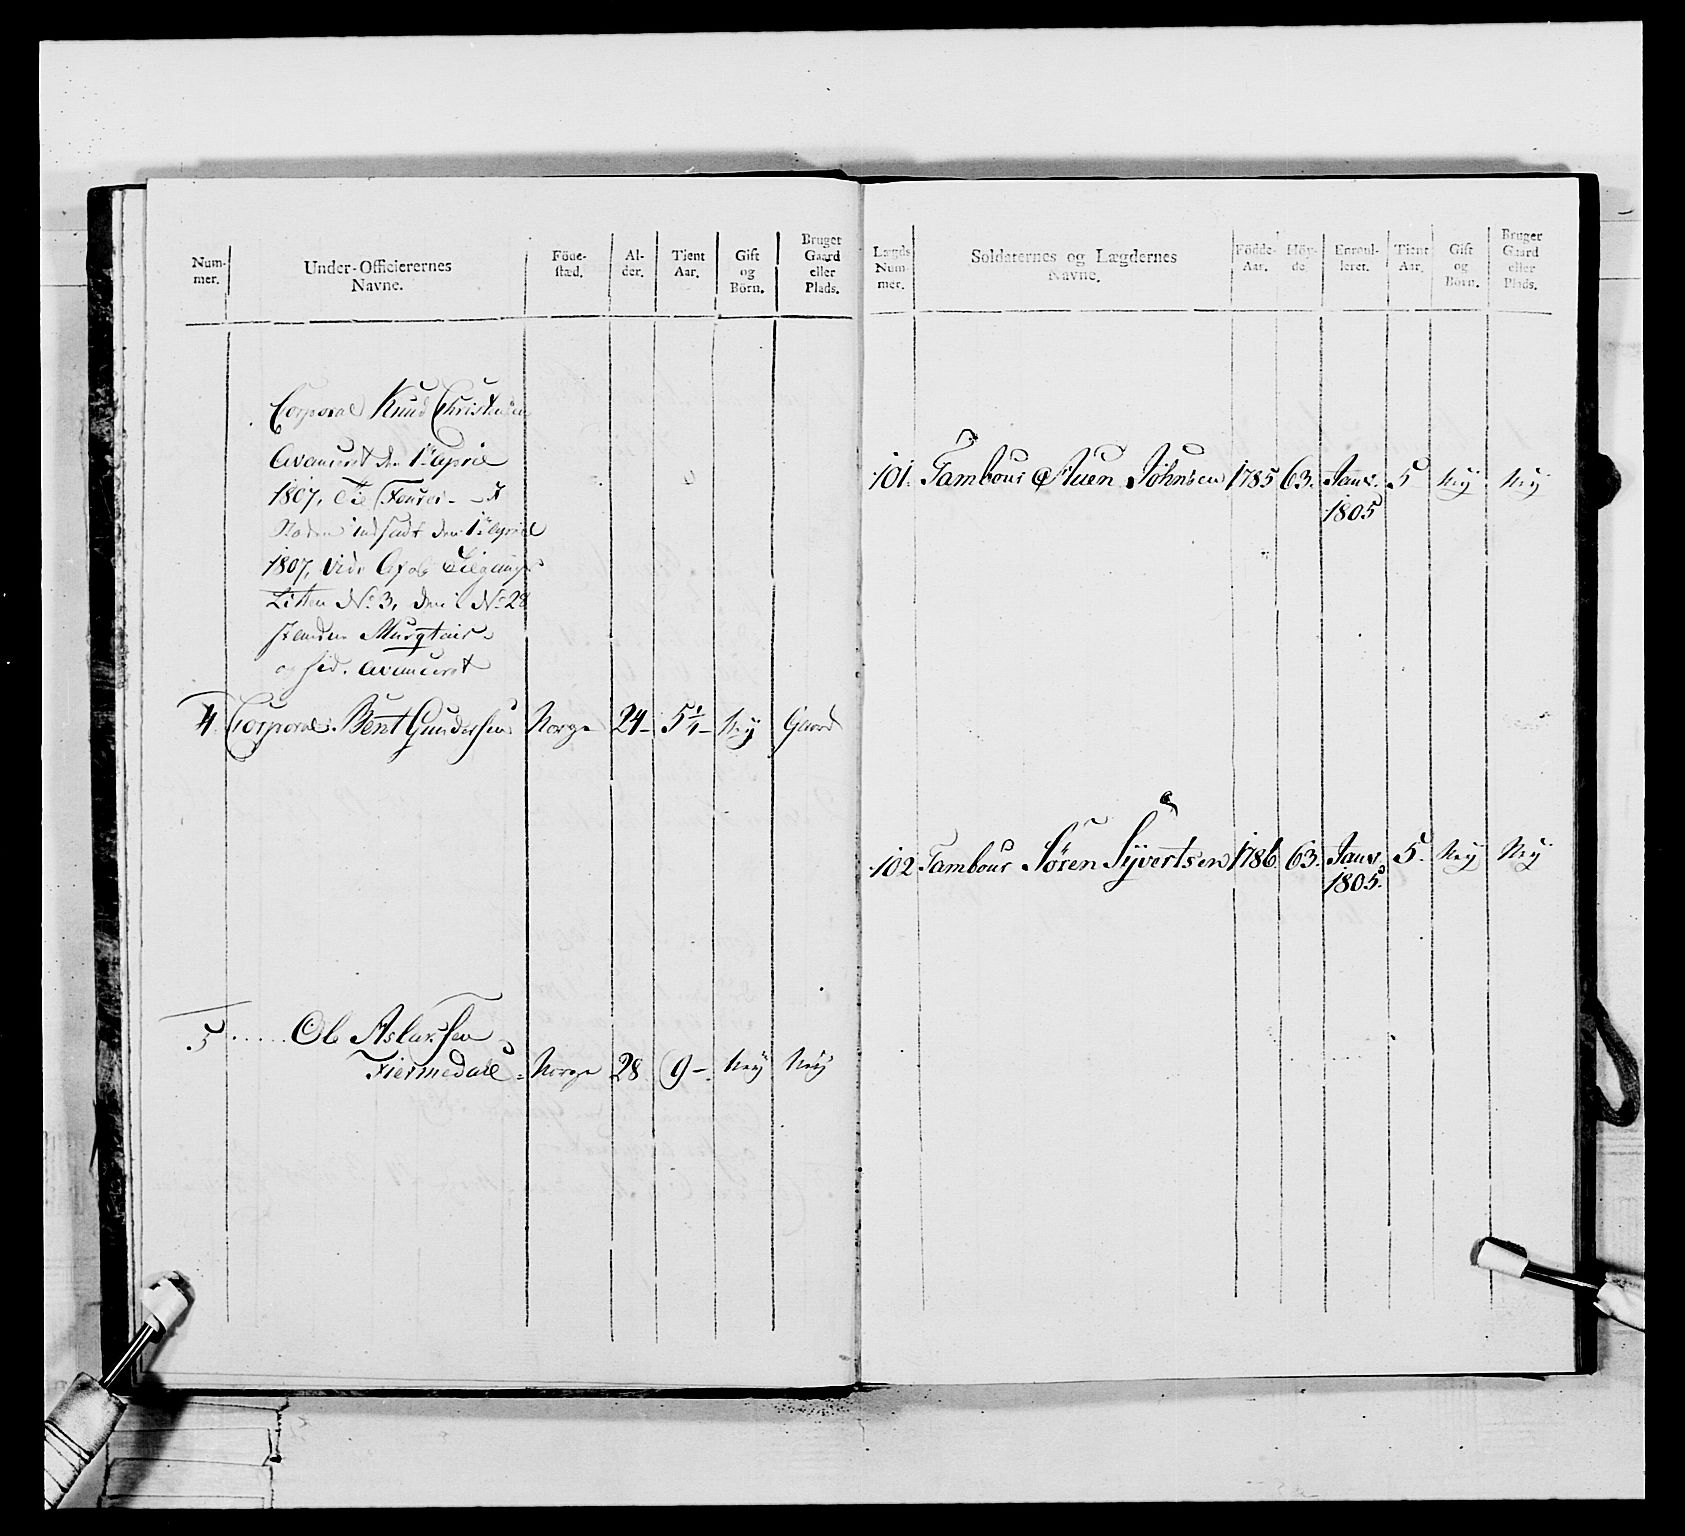 Num-
mer.
Under-Officierernes
Navne.
Föde-
stæd.
Al-
der.
Tient
Aar.
Gift
og
Börn.
Bruger
Gaard
eller
Plads.
Corporal Knud Christensen
Avanceret den 1te April
1807, til Fourer
indsadt den 1te April
1807, vide Af og Tilgangs
Listen No 3, den i No 28
standen
Avanceret
4. Corporal Bent Gundersen Norge 24- 5¼- Ney Gaard
5 ..... Ole Aslaksen
Fiermedall Norge 28 9- Ney Ney
Lægds
Num-
mer.
Soldaternes og Lægdernes
Navne.
Födde-
Aar.
Höy-
de
Enroul-
leret.
Tient
Aar.
Gift
og
Börn.
Bruger
Gaard
eller
Plads.
101. Tambour Auen Johnsen 1785 63. Janv. 5 Ney Ney
1805
102 Tambour Sören Syvertsen 1786. 63. Janv. 5. Ney Ney
1805.